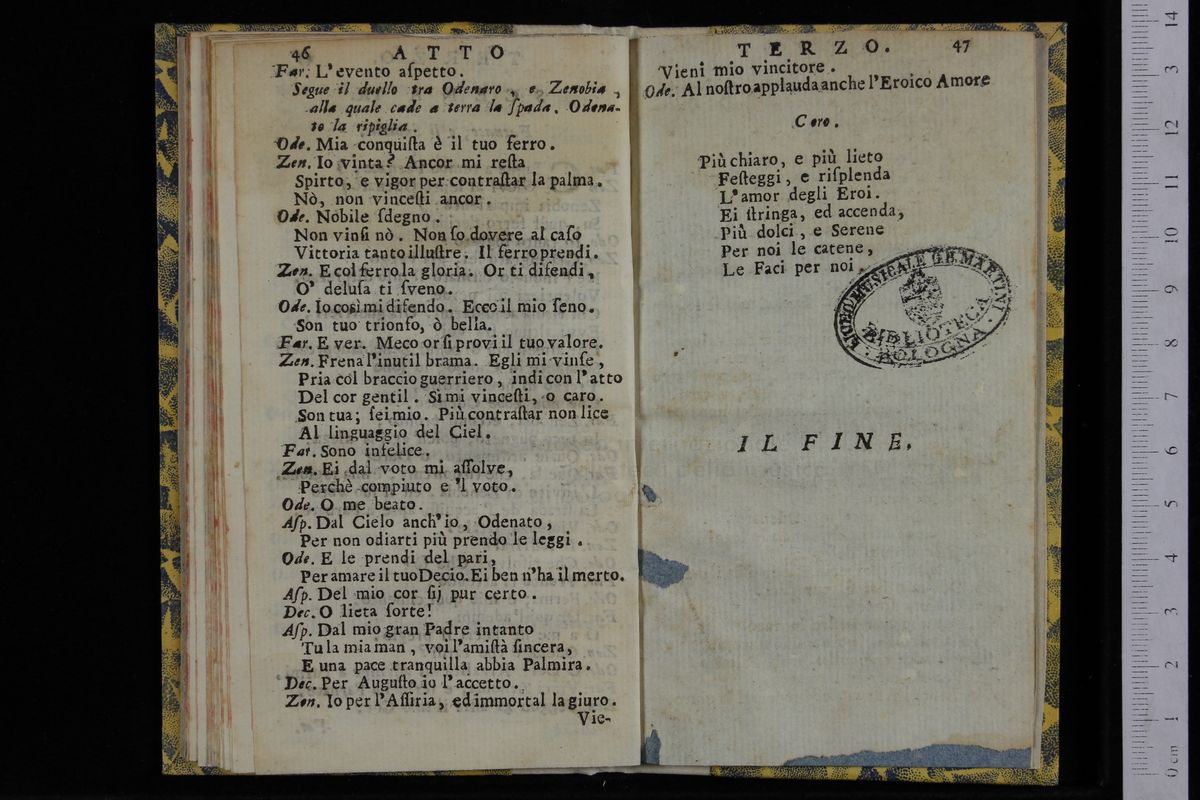 46 ATTO
Far. L'evento aſpetto.
Segue il duello tra Odenaro, e Zenobia,
alla quale cade a terra la ſpada. Odena-
to la ripiglia.
Ode. Mia conquiſta è il tuo ferro.
Zen. Io vinta? Ancor mi reſta
Spirto, e vigor per contraſtar la palma.
Nò, non vinceſti ancor.
Ode. Nobile ſdegno.
Non vinſi nò. Non ſo dovere al caſo
Vittoria tanto illuſtre. Il ferro prendi.
Zen. E col ferro la gloria. Or ti difendi,
O' deluſa ti ſveno.
Ode. Io così mi difendo. Ecco il mio ſeno.
Son tuo trionfo, ò bella.
Far. E ver. Meco or ſi provi il tuo valore.
Zen. Frena l'inutil brama. Egli mi vinſe,
Pria col braccio guerriero, indi con l'atto
Del cor gentil. Sì mi vinceſti, o caro.
Son tua; ſei mio. Più contraſtar non lice
Al linguaggio del Ciel.
Far. Sono infelice.
Zen. Ei dal voto mi aſſolve,
Perchè compiuto e 'l voto.
Ode. O me beato.
Aſp. Dal Cielo anch'io, Odenato,
Per non odiarti più prendo le leggi.
Ode. E le prendi del pari,
Per amare il tuo Decio. Ei ben n'ha il merto.
Aſp. Del mio cor ſij pur certo.
Dec. O lieta ſorte!
Aſp. Dal mio gran Padre intanto
Tu la mia man, voi l'amiſtà ſincera,
E una pace tranquilla abbia Palmira.
Dec. Per Auguſto io l'accetto.
Zen. Io per l'Aſſiria, ed immortal la giuro.
Vie-
TERZO. 47
Vieni mio vincitore.
Ode. Al noſtro applauda anche l'Eroico Amore
Coro.
Più chiaro, e più lieto
Feſteggi, e riſplenda
L'amor degli Eroi.
Ei ſtringa, ed accenda,
Più dolci, e Serene
Per noi le catene,
Le Faci per noi.
LICEO MUSICALE G.B. MARTINI
BIBLIOTECA
BOLOGNA
IL FINE.
14
13
12
11
10
9
8
7
6
5
4
3
2
1
0 cm